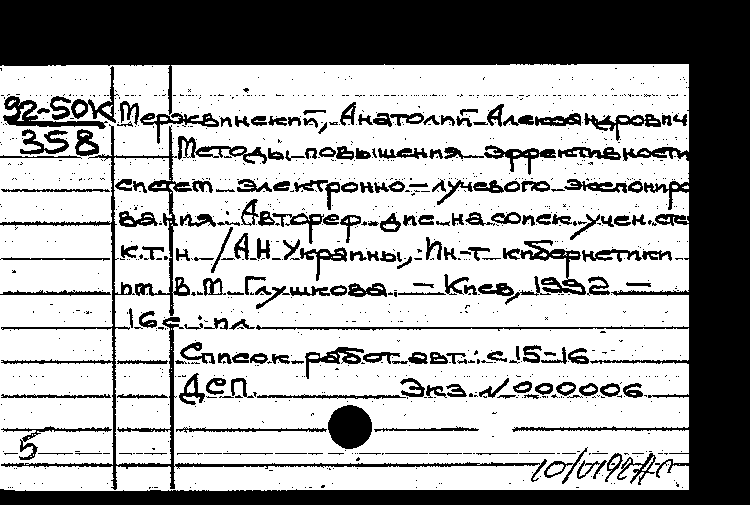 92-50К Мержвинский, Анатолий Александрович
358 Методы повышения эффективности
систем электронно-лучевого экспониро
вания: Автореф. дис. на соиск. учен. сте
к.т.н. /АН Украины, Ин-т кибернетики
им. В.М. Глушкова. - Киев, 1992 -
16с.: ил.
Список работ авт.: с 15-16
ДСП. Экз. №000006
5